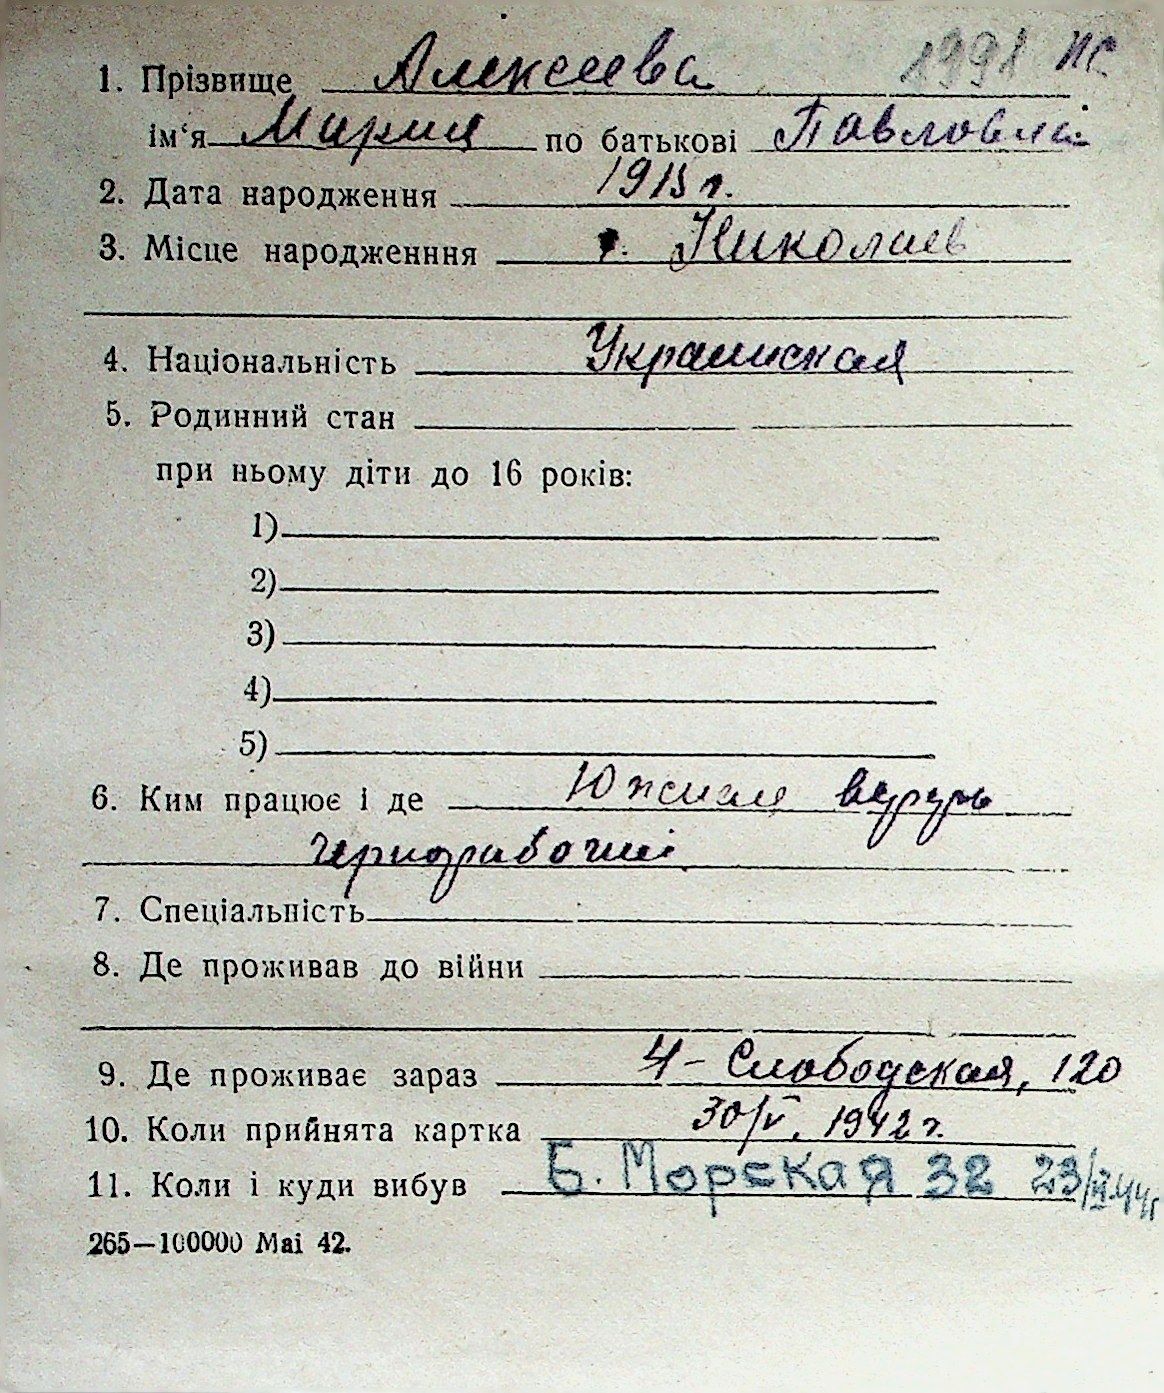 1. Прізвище Алексеева 1991 ПС
ім‘я Мария по батькові Павловна
2. Дата народження 1915 г.
3. Місце народженння г. Николаев
4. Національність Украинская
5. Родинний стан
при ньому діти до 16 років:
1)
2)
3)
4)
5)
6. Ким працює і де Южная верфь
чернорабочий
7. Спеціальність
8. Де проживав до війни
9. Де проживає зараз 4-Слободская, 120
10. Коли прийнята картка 30/V. 1942 г.
11. Коли і куди вибув Б. Морская 32 23/
265—100000 Mai 42.